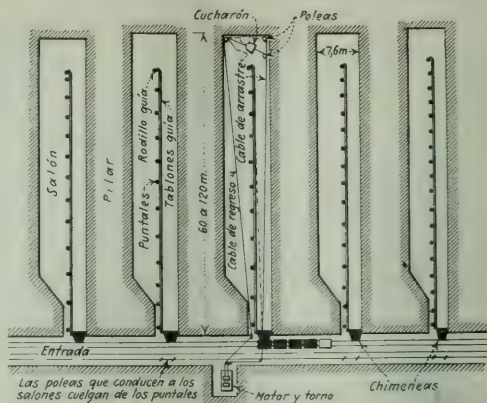 Cucharón
Poleas
7,6m
Salón
Pilar
Puntales
Rodillo guía
Tablones guía
60 a 120 m.
Cable de regreso y
Cable de arrastre
Entrada
Las poleas que conducen a los
salones cuelgan de los puntales
Motor y torno
Chimeneas